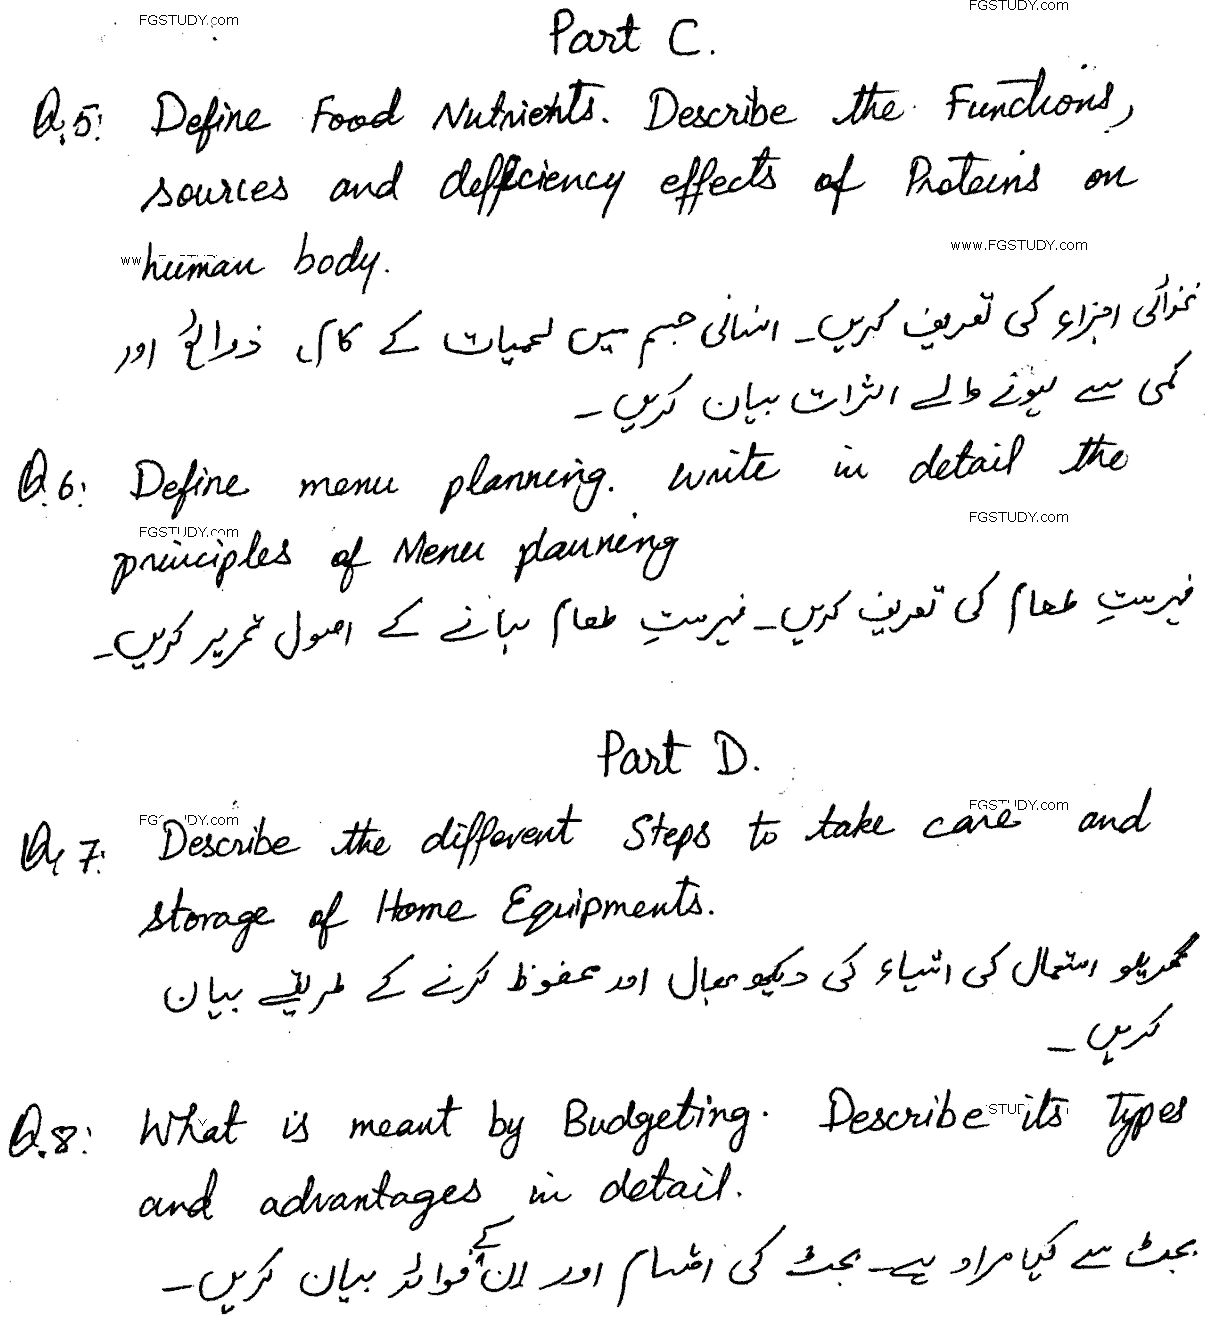 FGSTUDY.com
FGSTUDY.com
Part C.
Q.5: Define Food Nutrients. Describe the Functions,
sources and defficiency effects of Proteins on
www.FGSTUDY.com
human body.
غذائی اجزاء کی تعریف کریں۔ انسانی جسم میں لحمیات کے کام، ذرائع اور
کمی سے ہونے والے اثرات بیان کریں۔
Q.6: Define menu planning. write in detail the
FGSTUDY.com
FGSTUDY.com
principles of Menu planning
فہرستِ طعام کی تعریف کریں۔ فہرستِ طعام بنانے کے اصول تحریر کریں۔
Part D.
FGSTUDY.com
Q.7: Describe the different Steps to take care and
storage of Home Equipments.
گھریلو استعمال کی اشیاء کی دیکھ بھال اور محفوظ کرنے کے طریقے بیان
کریں۔
Q.8: What is meant by Budgeting. Describe its Types
and advantages in detail.
بجٹ سے کیا مراد ہے۔ بجٹ کی اقسام اور اِن کے فوائد بیان کریں۔